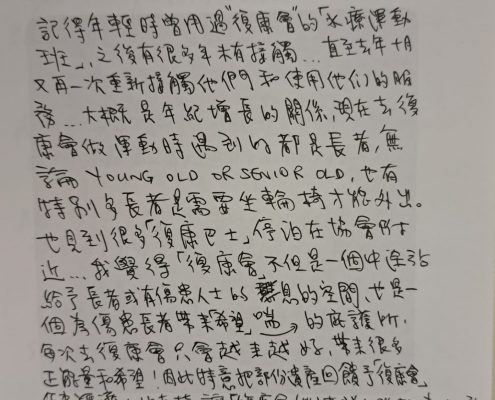 記得年輕時曾用過"復康會"的「水療運動
班」,之後有很多年未有接觸...直至去年十月
又再一次重新接觸他們和使用他们的服
務...大概是年紀增長的關係,現在去復
康會做運動時遇到的都是長者,無
論 YOUNG OLD OR SENIOR OLD,也有
特別多長者是需要坐輪椅才能外出。
也見到很多「復康巴士」停泊在協會附
近...我覺得「復康會」不但是一個中途站
給予長者或有傷患人士的 息的空間、也是一
個為傷患長者帶來「希望」 的庇護所,
每次去復康會只會越走越好,帶來很多
正能量和希望!因此特意把部份遺產回饋予「復康會」